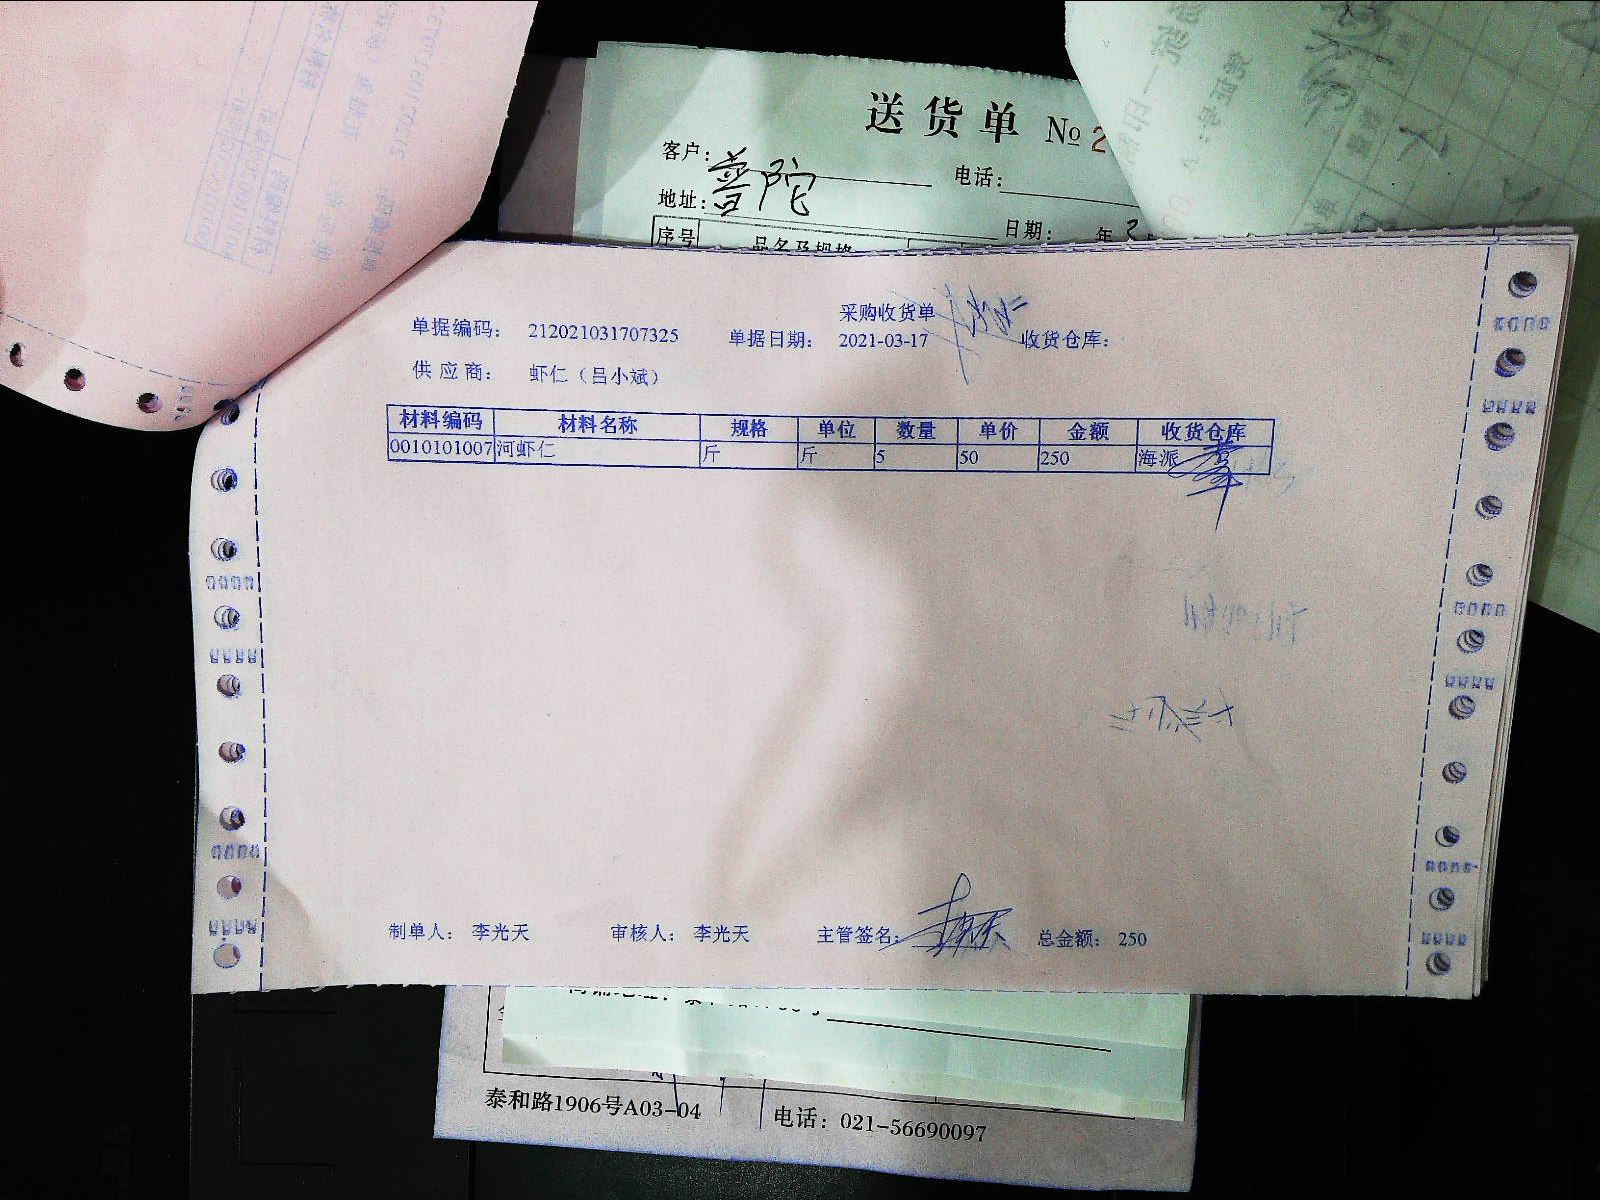 送货单 № 2
客户：普陀
电话：
地址：
日期： 年 3
序号 品名及规格
采购收货单
单据编码： 212021031707325 单据日期： 2021-03-17 收货仓库：
供应商： 虾仁（吕小斌）
材料编码 材料名称 规格 单位 数量 单价 金额 收货仓库
0010101007 河虾仁 斤 斤 5 50 250 海派
制单人： 李光天 审核人： 李光天 主管签名： 总金额： 250
泰和路1906号A03-04 电话：021-56690097